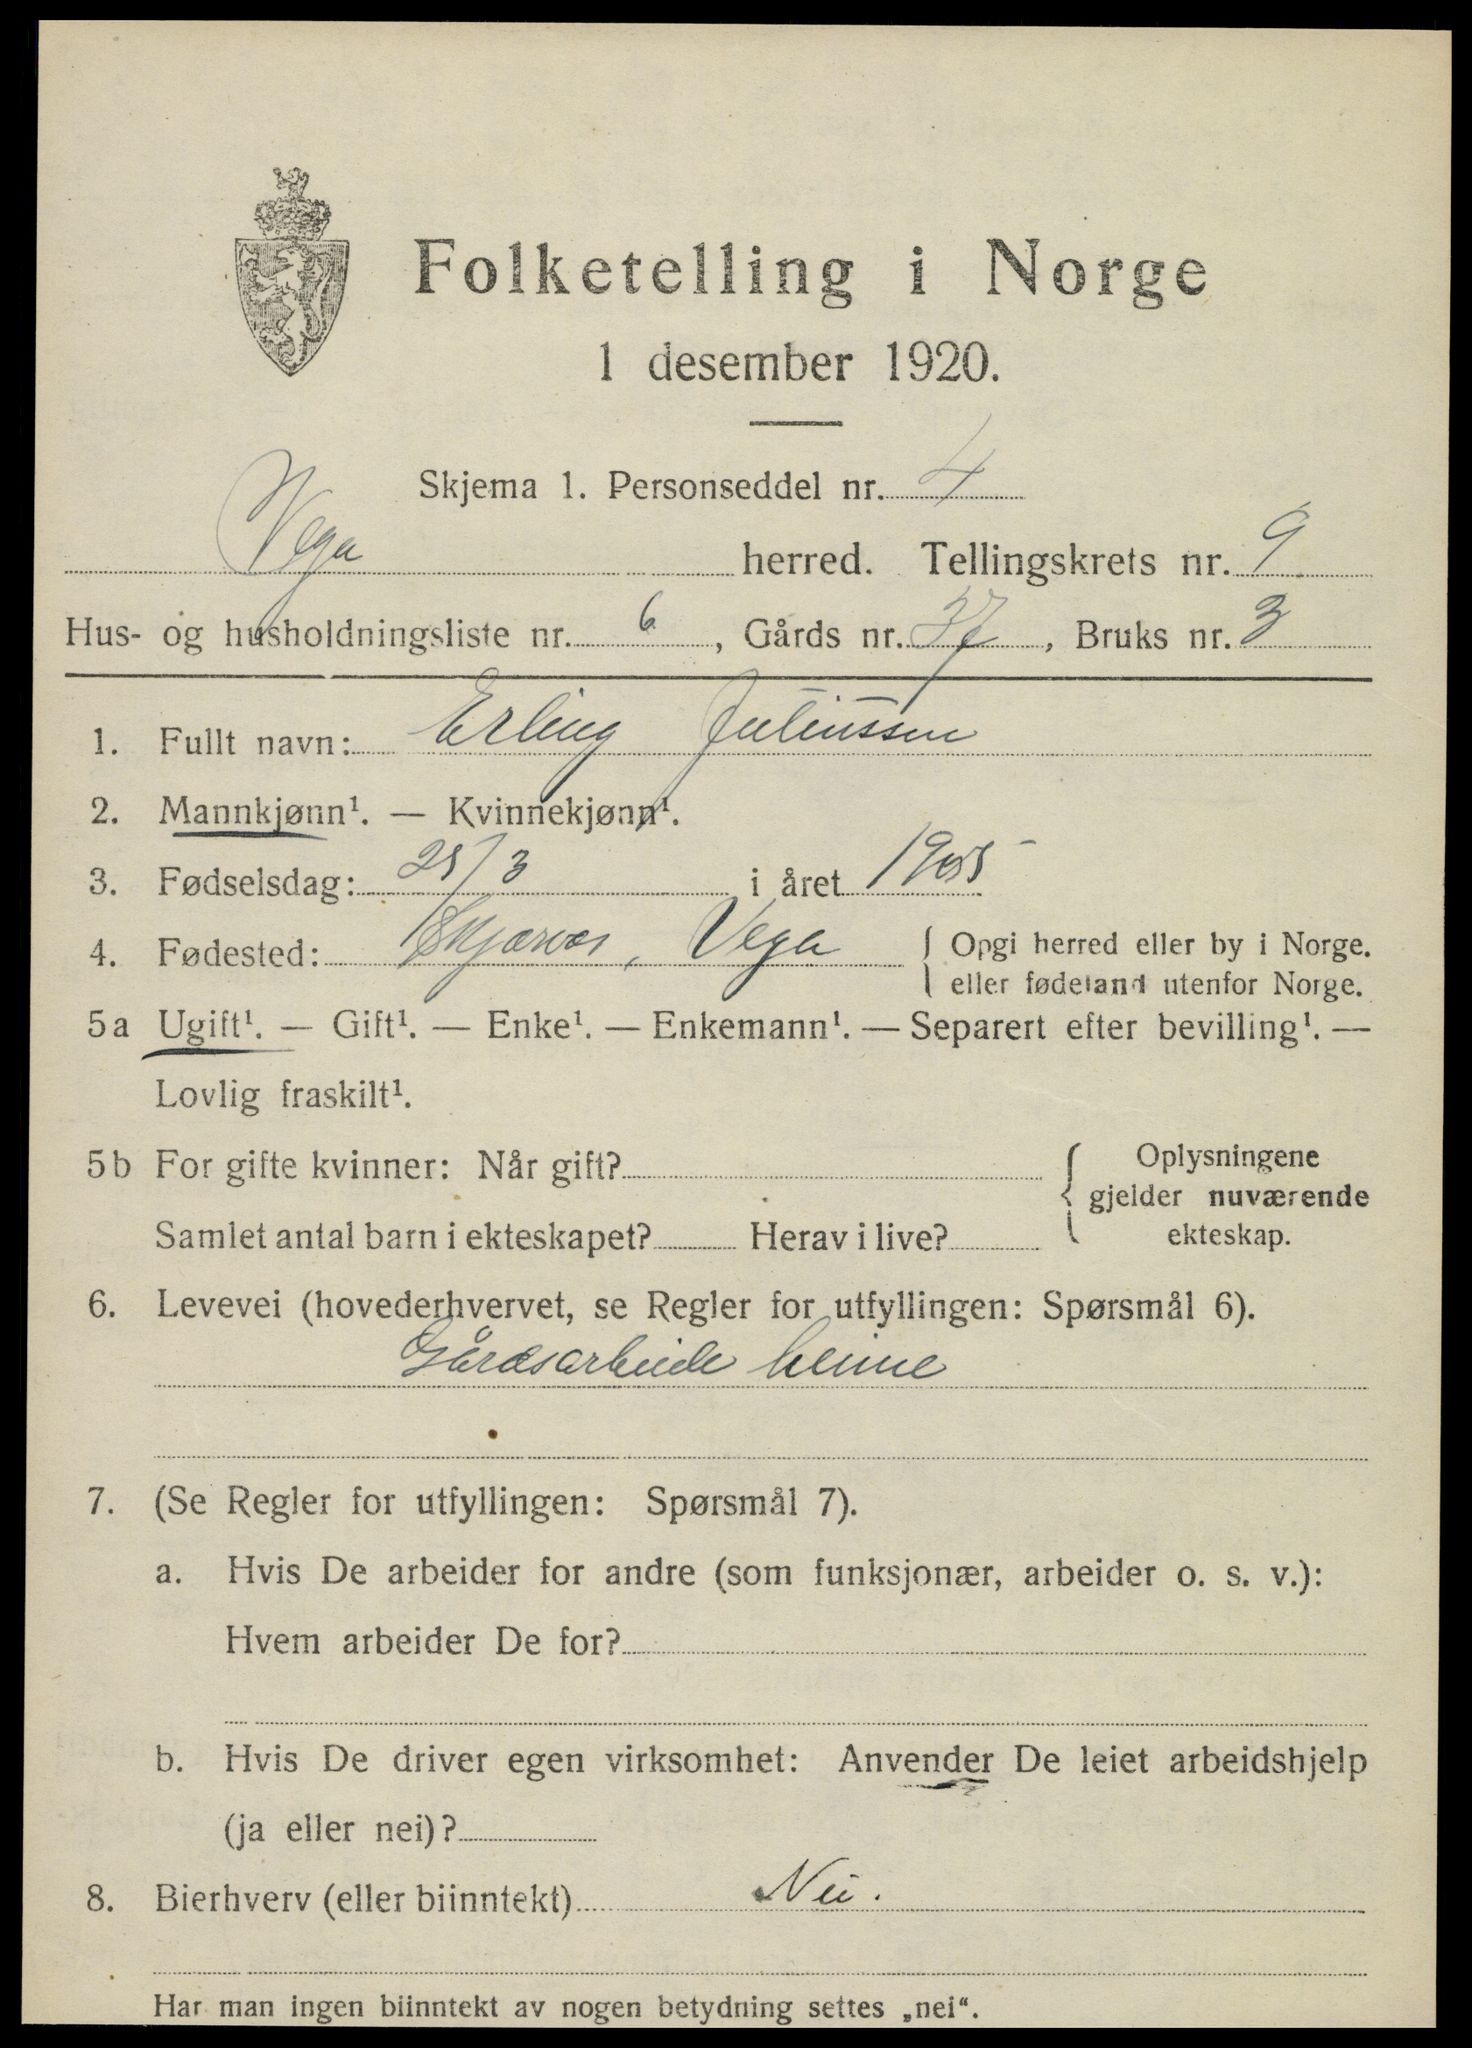 Folketelling i Norge
1 desember 1920.
Skjema 1. Personseddel nr. 4
Vega herred. Tellingskrets nr. 9
Hus- og husholdningsliste nr. 6, Gårds nr. 37, Bruks nr. 3
1. Fullt navn: Erling Juliussen
2. Mannkjønn¹. — Kvinnekjønn¹.
3. Fødselsdag: 25/3 i året 1905
4. Fødested: Skjærvær, Vega { Opgi herred eller by i Norge.
eller fødeland utenfor Norge.
5a Ugift¹. — Gift¹. — Enke¹. — Enkemann¹. — Separert efter bevilling¹. —
Lovlig fraskilt¹.
5b For gifte kvinner: Når gift? { Oplysningene
gjelder nuværende
Samlet antal barn i ekteskapet? Herav i live? ekteskap.
6. Levevei (hovederhvervet, se Regler for utfyllingen: Spørsmål 6).
Gårdsarbeide heime
7. (Se Regler for utfyllingen: Spørsmål 7).
a. Hvis De arbeider for andre (som funksjonær, arbeider o. s. v.):
Hvem arbeider De for?
b. Hvis De driver egen virksomhet: Anvender De leiet arbeidshjelp
(ja eller nei)?
8. Bierhverv (eller biinntekt) Nei.
Har man ingen biinntekt av nogen betydning settes „nei“.